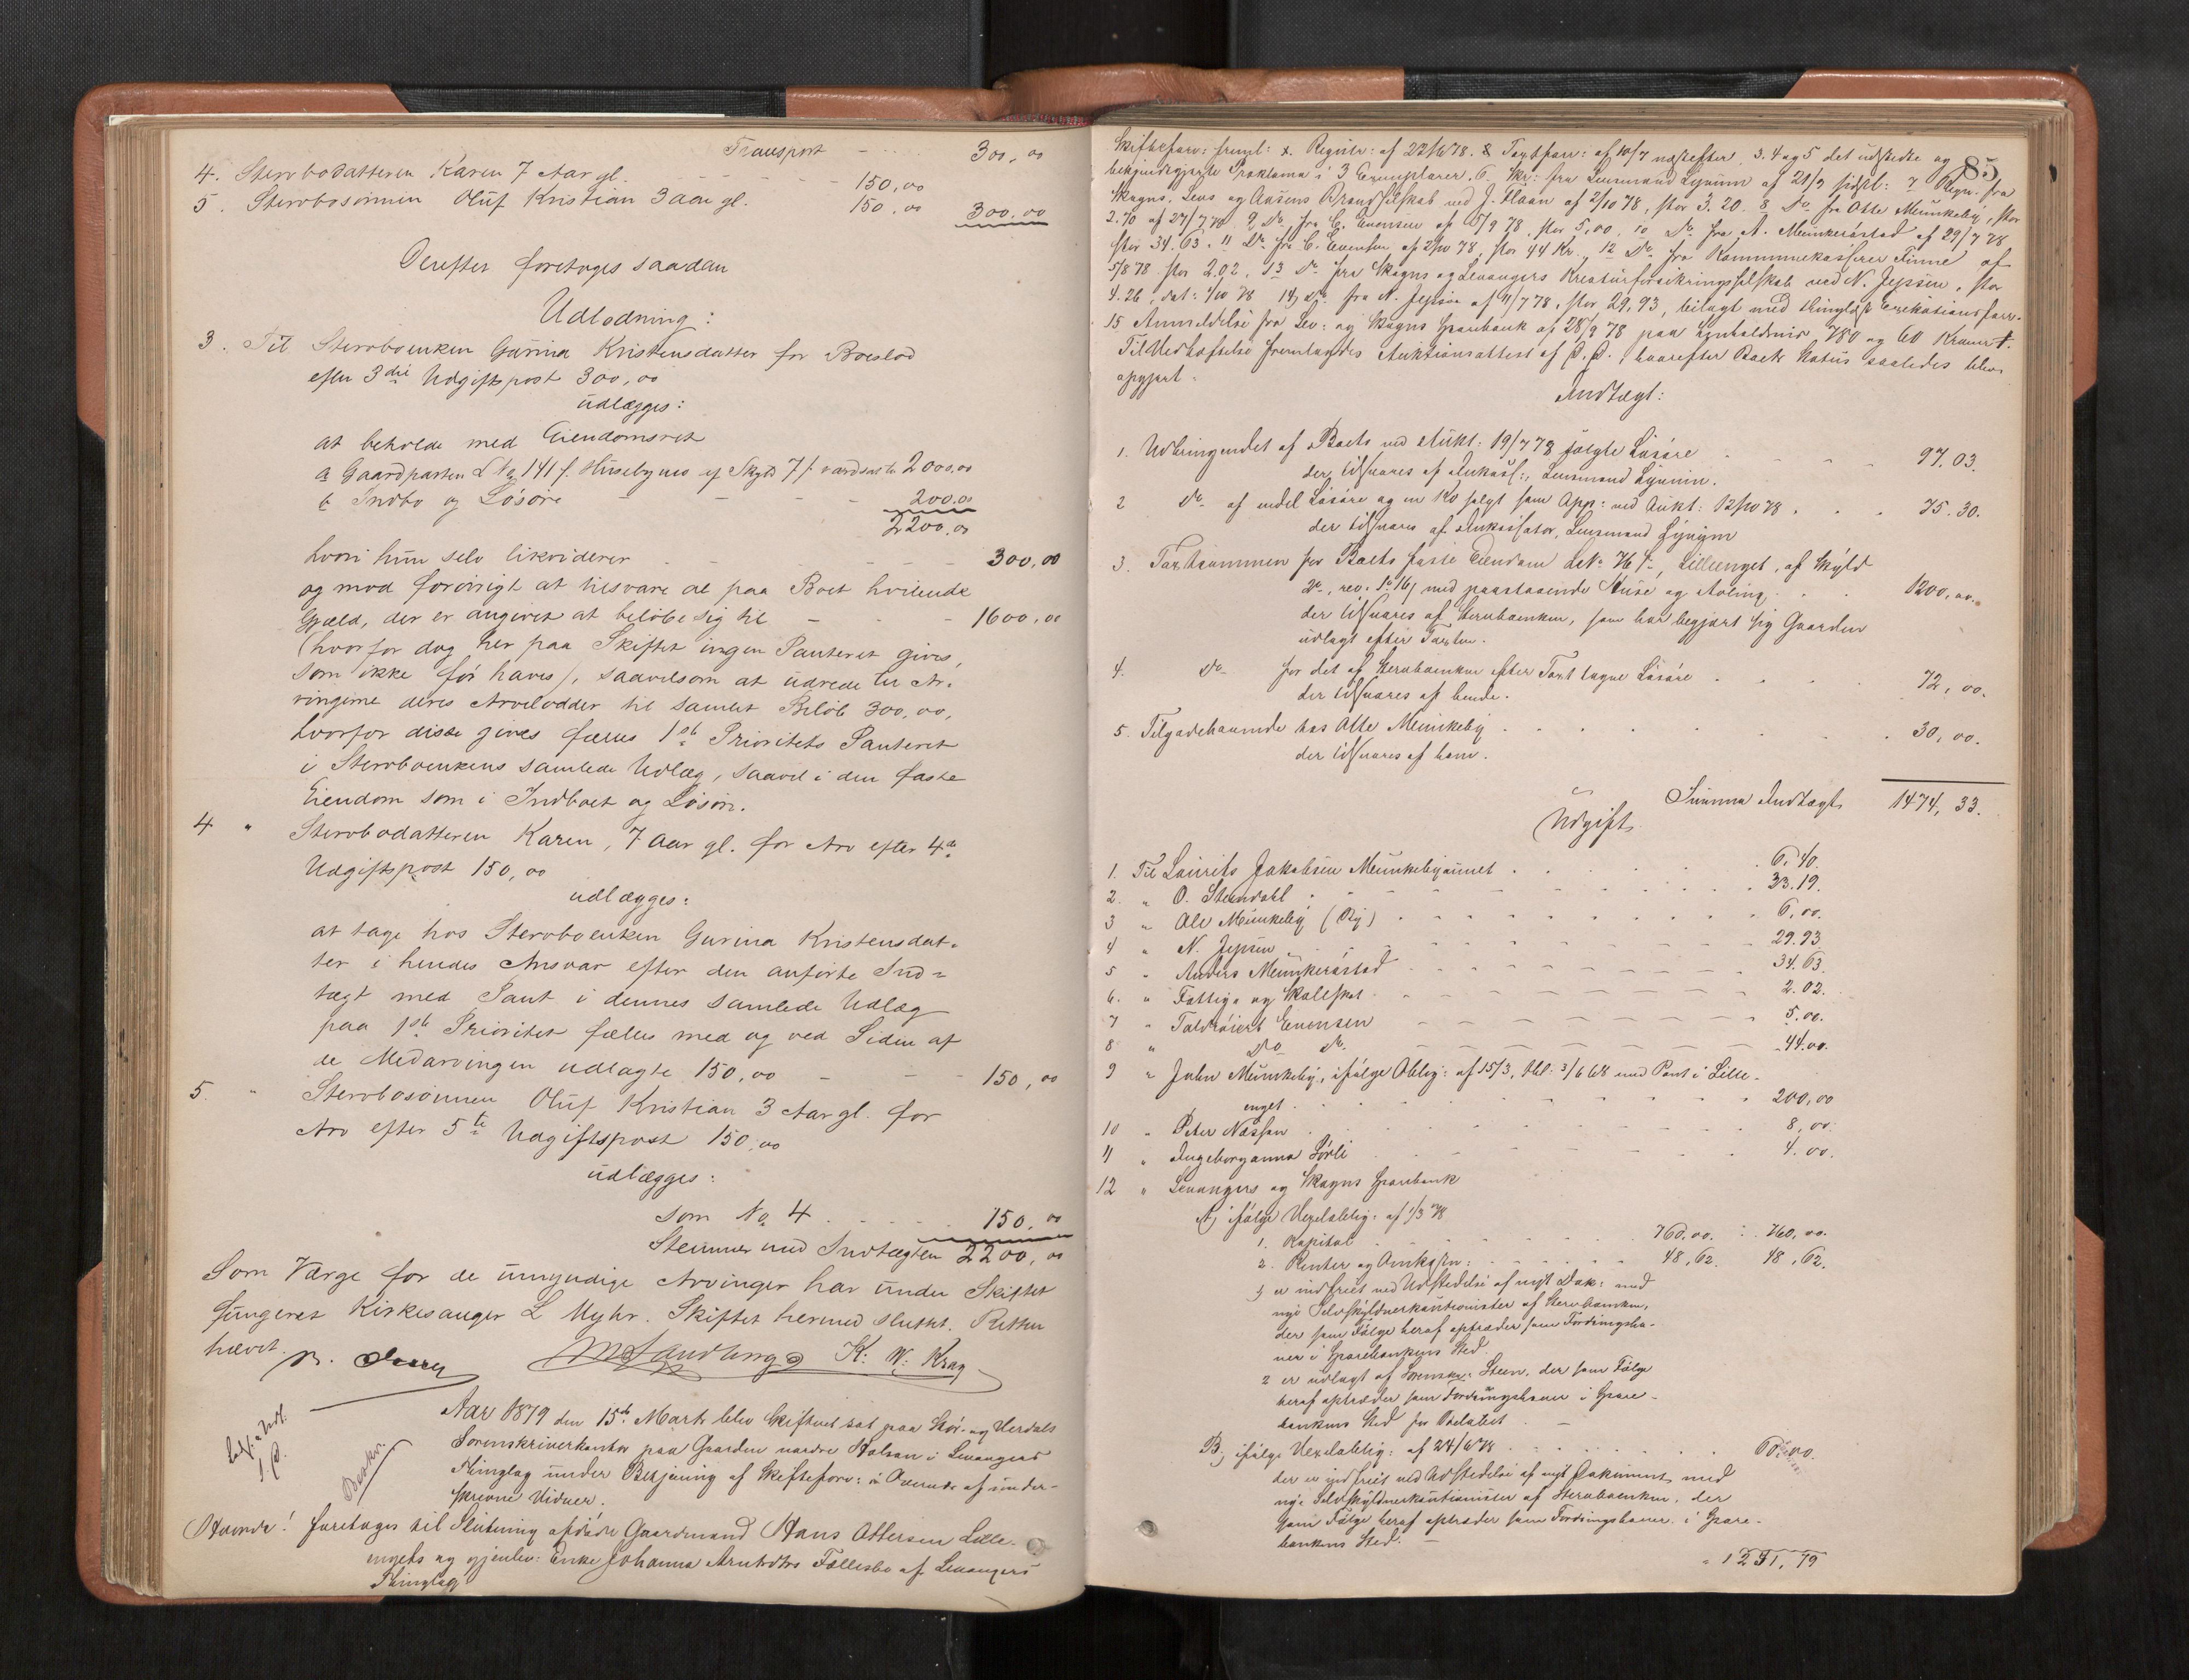 Transport - 300,00
4. Sterbodatteren Karen 7 Aar gl. - - - 150,00
5. Sterbosønnen Oluf Kristian 3 Aar gl. 150,00 300,00
Derefter foretoges saadan
Udlodning:
3. Til Sterboenken Gurina Kristensdatter for Boeslod
efter 3die Udgiftspost 300,00
udlægges:
at beholde med Eiendomsret
a Gaardparten L No 141 f. Husebyneo af Skyld 7 f. værdsat 2000,00
b Indbo og Løsøre - - - 200.00
2200,00
hvori hun selv likviderer - - - 300,00
og mod forøvrigt at tilsvare al paa Boet hvilende
Gjæld, der er angivet at beløbe sig til - - 1600,00
(hvorfor dog her paa Skiftet ingen Panteret gives,
som ikke før haves), saavelsom at udrede til Ar-
vingerne deres Arvelodder til samlet Beløb 300,00,
hvorfor disse gives fælles 1ste Prioritets Panteret
i Sterboenkens samlede Udlæg, saavel i den faste
Eiendom som i Indboet og Løsøre.
4 " Sterbodatteren Karen, 7 Aar gl. for Arv efter 4de
Udgiftspost 150,00
udlægges:
at tage hos Sterboenken Gurina Kristensdat-
ter i hendes Ansvar efter den anførte Ind-
tægt med Pant i dennes samlede Udlæg
paa 1ste Prioritet fælles med og ved Siden af
de Medarvingen udlagte 150,00 - - 150,00
5. " Sterbosønnen Oluf Kristian 3 Aar gl. for
Arv efter 5te Udgiftspost 150,00
udlægges:
som No 4 - - - 150.00
Stemmer med Indtægten 2200,00
Som Værge for de umyndige Arvinger har under Skiftet
fungeret Kirkesanger L Myhr. Skiftet hermed sluttet. Retten
hævet.
K: W: Krag
Aar 1879 den 15de Marts blev Skifteret sat paa Stør- og Verdals
Sorenskriverkontor paa Gaarden nordre Halsan i Levangers
Thinglag under Betjening af Skifteforv: i Overvær af under-
skrevne Vidner.
Beskr.
Hvorda! foretoges til Slutning afdøde Gaardmand Hans Ottersen Lille-
engets og gjenlev: Enke Johanna Arntsdtrs Fællesbo af Levangers
Thinglag
85
Skifteforv: freml: 1. Registr: af 22/6 78. 2 Taxtforr: af 10/7 næstefter, 3. 4 og 5 det udstedte og
bekjendtgjorte Proklama i 3 Exemplarer. 6. Skr: fra Lensmand Lynum af 21/9 sidstl: 7 Regn. fra
Skogns, Levs og Aasens Brandselskab ved J. Flaan af 2/10 78, stor 3.20. 8 Do fra Otte Munkeby, stor
2.70 af 27/7 78. 9 Do. fra C. Evensen af 15/9 78, stor 5,00, 10 Do. fra A. Munkerøstad af 29/7 78
stor 34.63. 11 Do. fra C. Evensen af 2/10 78, stor 44 Kr., 12 Do. fra Kommunekasserer Finne af
5/8 78 stor 2.02, 13 Do. fra Skogns og Levangers Kreaturforsikringsselskab ved N. Jepsen, stor
4.26, dat: 1/10 78 14, Do. fra N. Jepsen af 11/7 78, stor 29,93, bilagt med thinglæst Exekutionsforr.
15 Anmeldelse fra Lev: og Skogns Sparebank af 28/9 78 paa henholdsvis 780 og 60 Kroner.
Til Vedhæftelse fremlagdes Auktionsattest af D. D., hvorefter Boets Status saaledes blev
opgjort.
Indtægt:
1. Udbringendet af Boets ved Aukt: 19/7 78 solgte Løsøre - - - 97.03.
der tilsvares af Inkass:, Lensmand Lynum.
2 Do. af endel Løsøre og en Ko solgt som App: ved Aukt: 12/10 78 . . . 75.30.
der tilsvares af Inkassator, Lensmand Lynum
3. Taxtsummen for Boets faste Eiendom L No 76 f, Lilleenget, af Skyld
med paastaaende Huse og Avling . . . 1200,00.
der tilsvares af Sterboenken, som har begjært sig Gaarden
udlagt efter Taxten.
4. Do for det af Sterboenken efter Taxt tagne Løsøre . . . 72,00.
der tilsvares af hende.
5. Tilgodehavende hos Otte Munkeby . . . 30,00.
der tilsvares af ham.
Summa Indtægt 1474,33.
Udgift
1. Til Laurits Jakobsen Munkebyaunet . . . 6.40.
2. " O. Steendahl . . . 33.19.
3 " Ole Munkeby (Ry) . . . 6,00.
4 " N. Jepsen - - - 29.93
5 " Anders Munkerøstad - - - 34.63.
6. " Fattig- og Skoleskat - - - 2.02.
7 " Toldrøiert Evensen - - - 5.00.
8 " Do do. - - - 44.00.
9 " John Munkeby, ifølge Oblig: af 15/3, tbl: 3/6 68 med Pant i Lille-
enget . . . 200,00
10 " Peter Næssen . . . 8,00.
11 " Ingeborganna Sørli . . . 4.00.
12 " Levangers og Skogns Sparebank
A, ifølge Vexeloblig: af 1/3 78
1. Kapital . . . 760.00. 760,00.
2. Renter og Omkostn: . . . 48,62. 48,62.
1 er indfriet ved Udstedelse af nyt Dok: med
nye Selvskyldnerkautionister af Sterboenken,
der som Følge heraf optræder som Fordringsha-
ver i Sparebankens Sted.
2 er udlagt af Sorenskr: Steen, der som Følge
heraf optræder som Fordringshaver i Spare-
bankens Sted for Beløbet
B, ifølge Vexeloblig: af 24/6 78 . . . 60.00.
der er indfriet ved Udstedelse af nyt Dokument med
nye Selvskyldnerkautionister af Sterboenken, der
som Følge heraf optræder som Fordringshaver i Spare-
bankens Sted.
1241,79